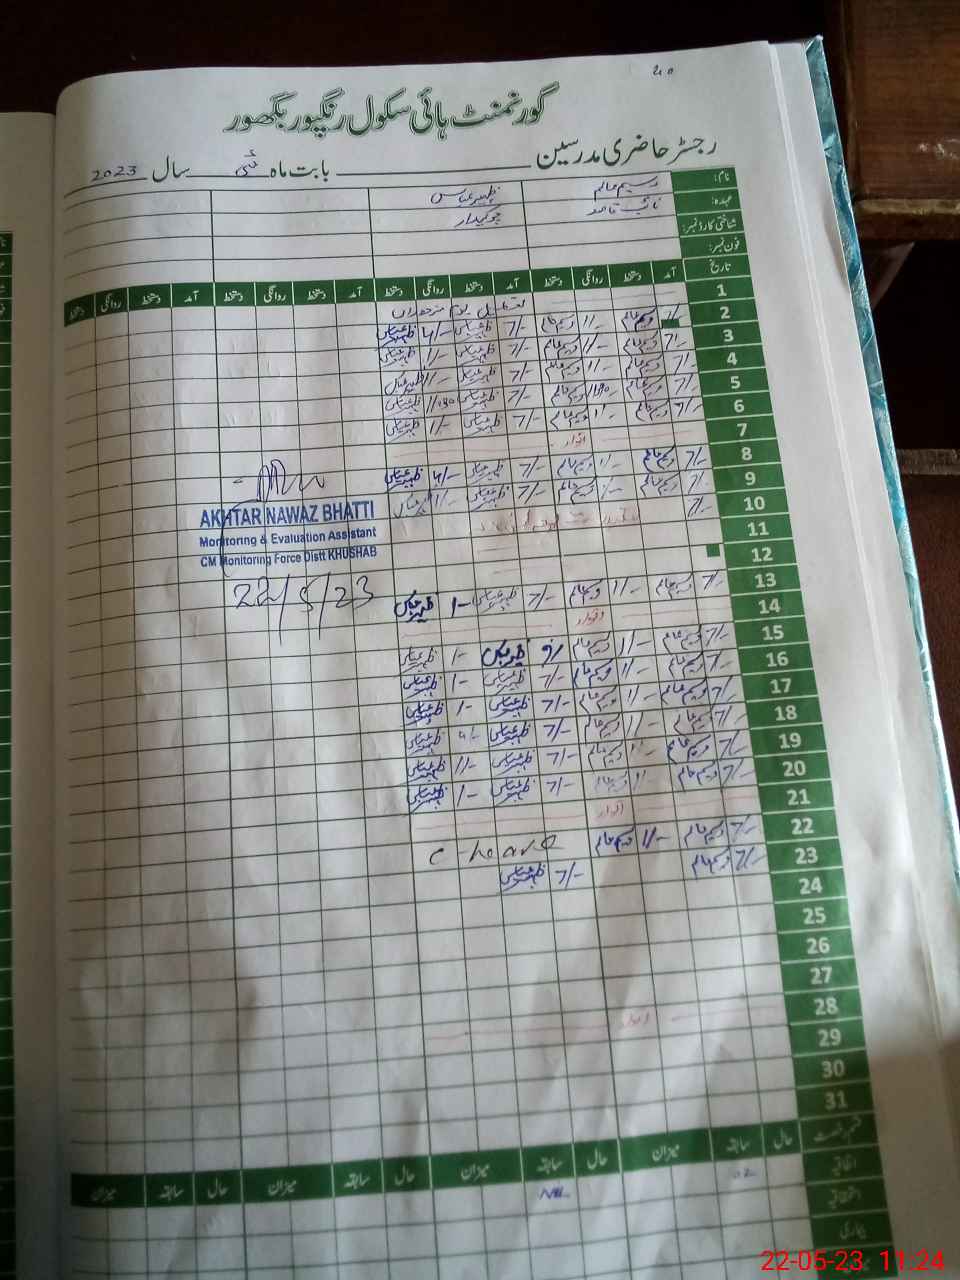 40
گورنمنٹ ہائی سکول رنگپور بگھور
رجسٹر حاضری مدرسین بابت ماہ مئی سال 2023
نام: وسیم عالم ظہیر عباس
عہدہ: نائب قاصد چوکیدار
شناختی کارڈ نمبر:
فون نمبر:
تاریخ آمد دستخط روانگی دستخط آمد دستخط روانگی دستخط آمد دستخط روانگی دستخط آمد دستخط روانگی دستخط
1 تعطیل یوم مزدوراں
2 7/- وسیم عالم 1/- وسیم عالم 7/- ظہیر عباس 4/- ظہیر عباس
3 7/- وسیم عالم 1/- وسیم عالم 7/- ظہیر عباس 1/- ظہیر عباس
4 7/- وسیم عالم 1/- وسیم عالم 7/- ظہیر عباس 1/- ظہیر عباس
5 7/- وسیم عالم 11/30 وسیم عالم 7/- ظہیر عباس 11/30 ظہیر عباس
6 7/- وسیم عالم 1/- وسیم عالم 7/- ظہیر عباس 1/- ظہیر عباس
7 اتوار
8 7/- وسیم عالم 1/- وسیم عالم 7/- ظہیر عباس 4/- ظہیر عباس
9 7/- وسیم عالم 1/- وسیم عالم 7/- ظہیر عباس 1/- ظہیر عباس
10 7/-
11
12
13 7/- وسیم عالم 1/- وسیم عالم 7/- ظہیر عباس 1/- ظہیر عباس
14 اتوار
15 7/- وسیم عالم 1/- وسیم عالم ظہیر عباس 1/- ظہیر عباس
16 7/- وسیم عالم 1/- وسیم عالم 7/- ظہیر عباس 1/- ظہیر عباس
17 7/- وسیم عالم 1/- وسیم عالم 7/- ظہیر عباس 1/- ظہیر عباس
18 7/- وسیم عالم 1/- وسیم عالم 7/- ظہیر عباس ظہیر عباس
19 7/- وسیم عالم 1/- وسیم عالم 7/- ظہیر عباس 1/- ظہیر عباس
20 7/- وسیم عالم 1/- وسیم عالم 7/- ظہیر عباس 1/- ظہیر عباس
21 اتوار
22 7/- وسیم عالم 1/- وسیم عالم
23 7/- وسیم عالم 7/- ظہیر عباس
24
25
26
27
28 اتوار
29
30
31
AKHTAR NAWAZ BHATTI
Monitoring & Evaluation Assistant
CM Monitoring Force Distt KHUSHAB
22/5/23
قسم رخصت حال سابقہ میزان حال سابقہ میزان حال سابقہ میزان حال سابقہ میزان
اتفاقیہ 02
استحقاقیہ NIL
بیماری
22-05-23 11:24